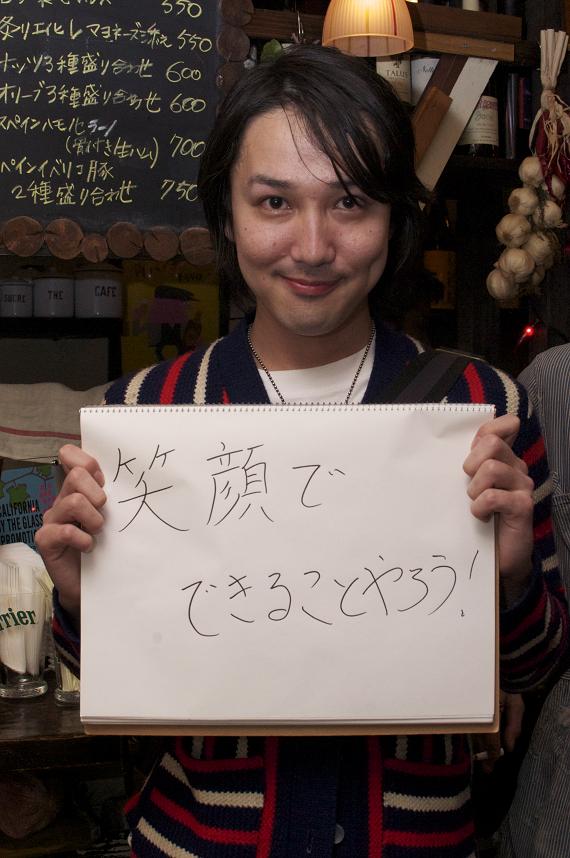 550
炙りエイヒレ マヨネーズ添え 550
ナッツ3種盛り合わせ 600
オリーブ3種盛り合わせ 600
スペインハモンセラーノ
(骨付き生ハム) 700
ペインイベリコ豚
2種盛り合わせ 750
TALUS
SUCRE
THÉ
CAFÉ
笑顔で
できることやろう!
CALIFORNIA
BY THE GLASS
PROMOTI
rrier